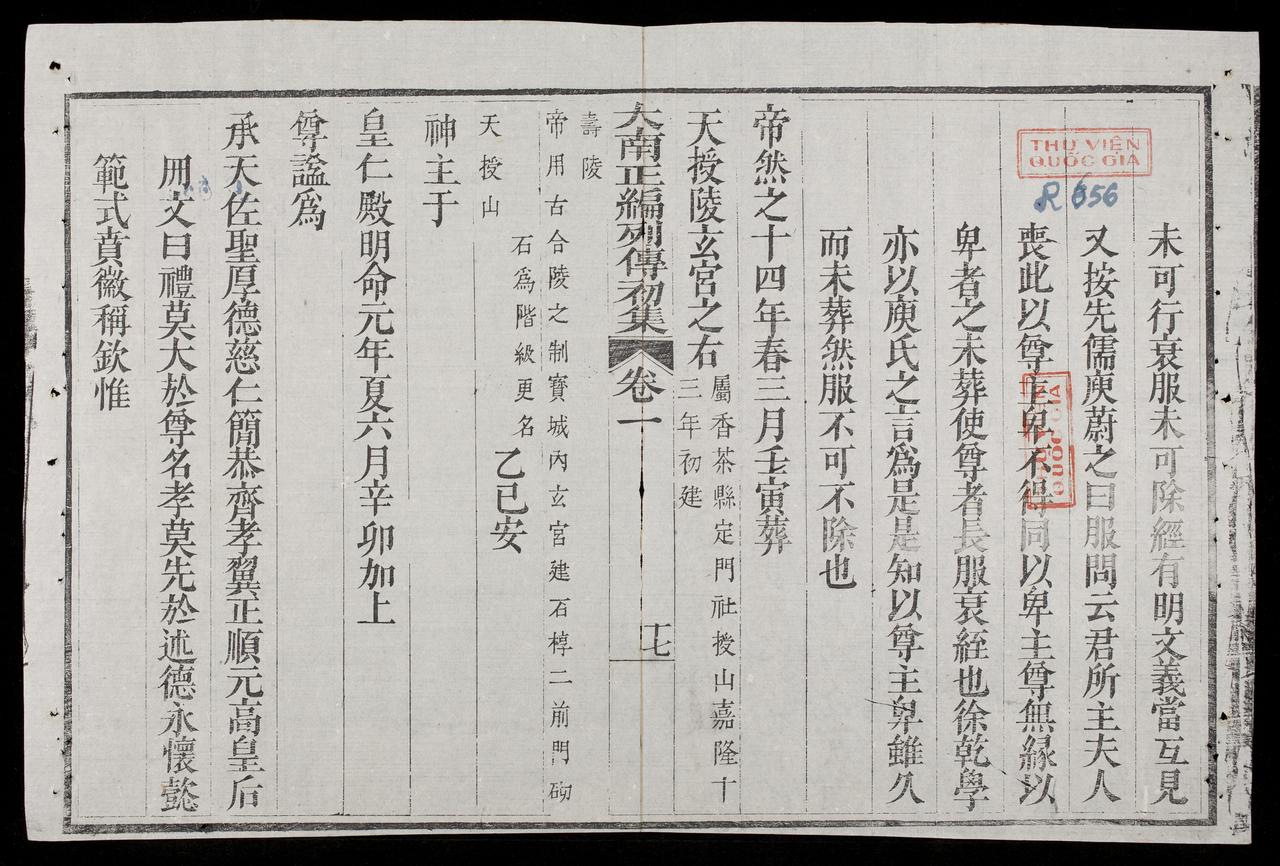 THƯ VIỆN
QUỐC GIA
R 656
未可行哀服未可除經有明文義當互見
又按先儒庾蔚之曰服問云君所主夫人
喪此以尊主卑不得同以卑主尊無緣以
卑者之未葬使尊者長服衰絰也徐乾學
亦以庾氏之言爲是是知以尊主卑雖久
而未葬然服不可不除也
帝然之十四年春三月壬寅葬
天授陵玄宮之右
屬香茶縣定門社授山嘉隆十
三年初建
大南正編列傳初集
卷一
十七
壽陵
帝用古合陵之制寶城內玄宮建石椁二前門砌
石爲階級更名
天授山
乙巳安
神主于
皇仁殿明命元年夏六月辛卯加上
尊諡爲
承天佐聖厚德慈仁簡恭齊孝翼正順元高皇后
冊文曰禮莫大於尊名孝莫先於述德永懷懿
範式賁徽稱欽惟